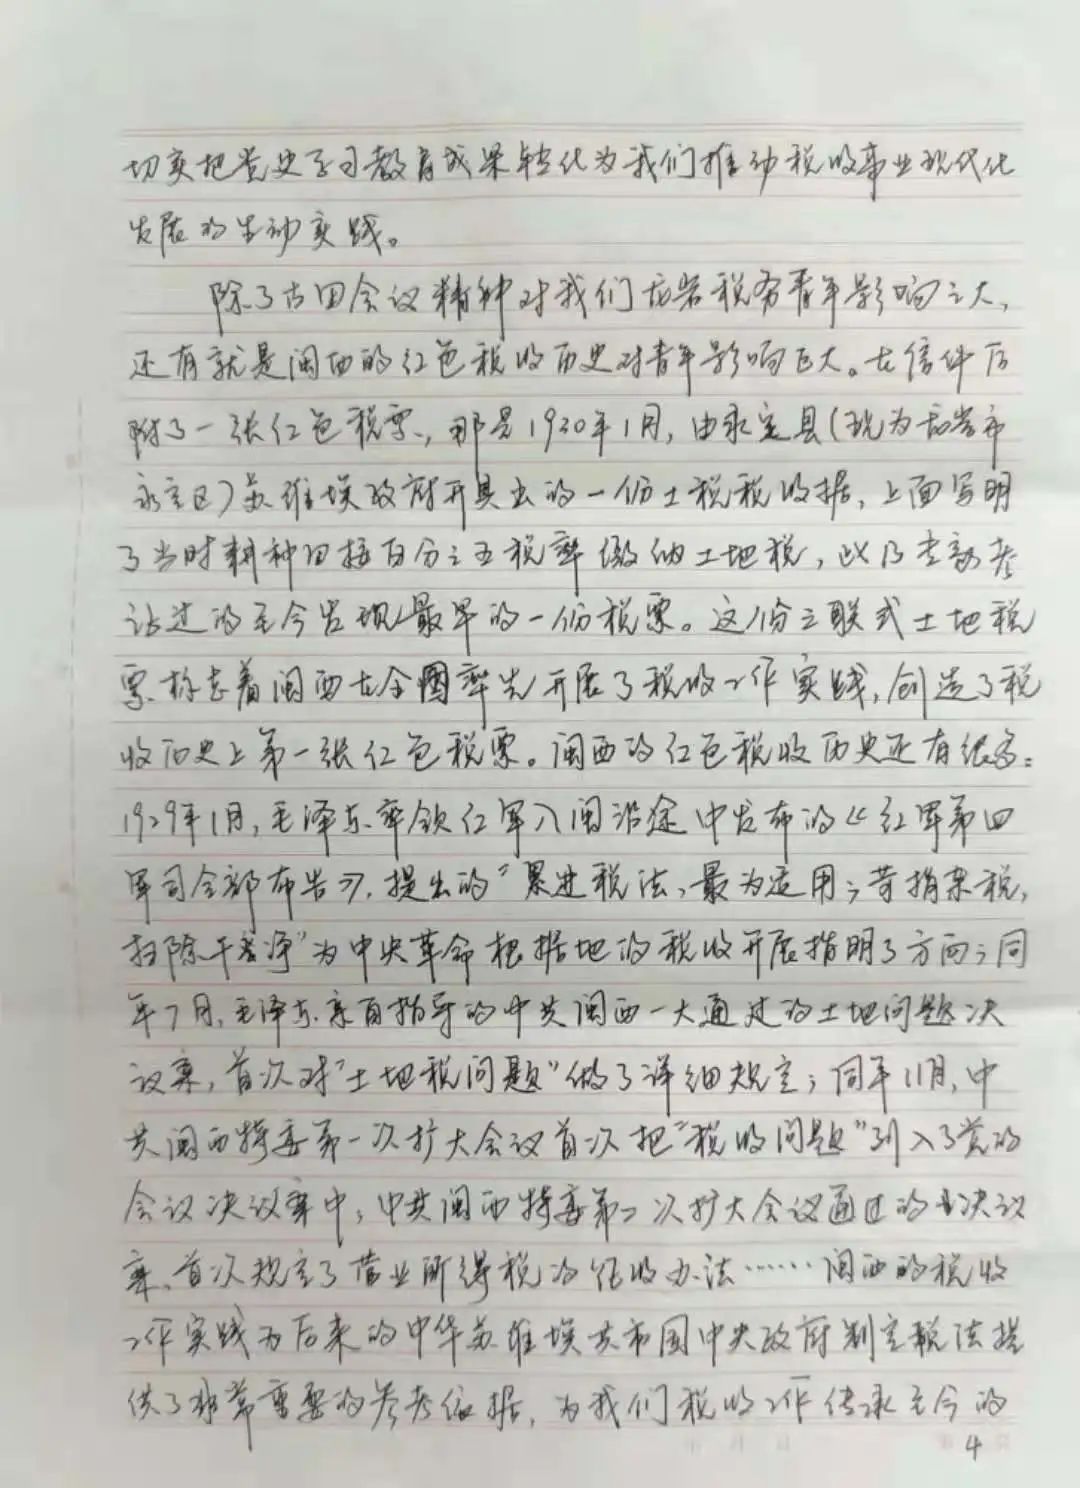 切实把党史学习教育成果转化为我们推动税收事业现代化
发展的生动实践。
除了古田会议精神对我们龙岩税务青年影响之大，
还有就是闽西的红色税收历史对青年影响巨大。在信件后
附了一张红色税票，那是1930年1月，由永定县（现为龙岩市
永定区）苏维埃政府开具出的一份土税税收据，上面写明
了当时耕种田按百分之五税率缴纳土地税，
过的至今发现最早的一份税票。这份三联式土地税
票标志着闽西在全国率先开展了税收工作实践，创造了税
收历史上第一张红色税票。闽西的红色税收历史还有很多：
1929年1月，毛泽东率领红军入闽沿途中发布的《红军第四
军司令部布告》，提出的“累进税法，最为适用；苛捐杂税，
扫除干净”为中央革命根据地的税收开展指明了方向；同
年7月，毛泽东亲自指导的中共闽西一大通过的土地问题决
议案，首次对“土地税问题”做了详细规定；同年11月，中
共闽西特委第一次扩大会议首次把“税收问题”列入了党的
会议决议案中；中共闽西特委第二次扩大会议通过的决议
案，首次规定了营业所得税的征收办法……闽西的税收
工作实践为后来的中华苏维埃共和国中央政府制定税法提
供了非常重要的参考依据，为我们税收工作传承至今的
4